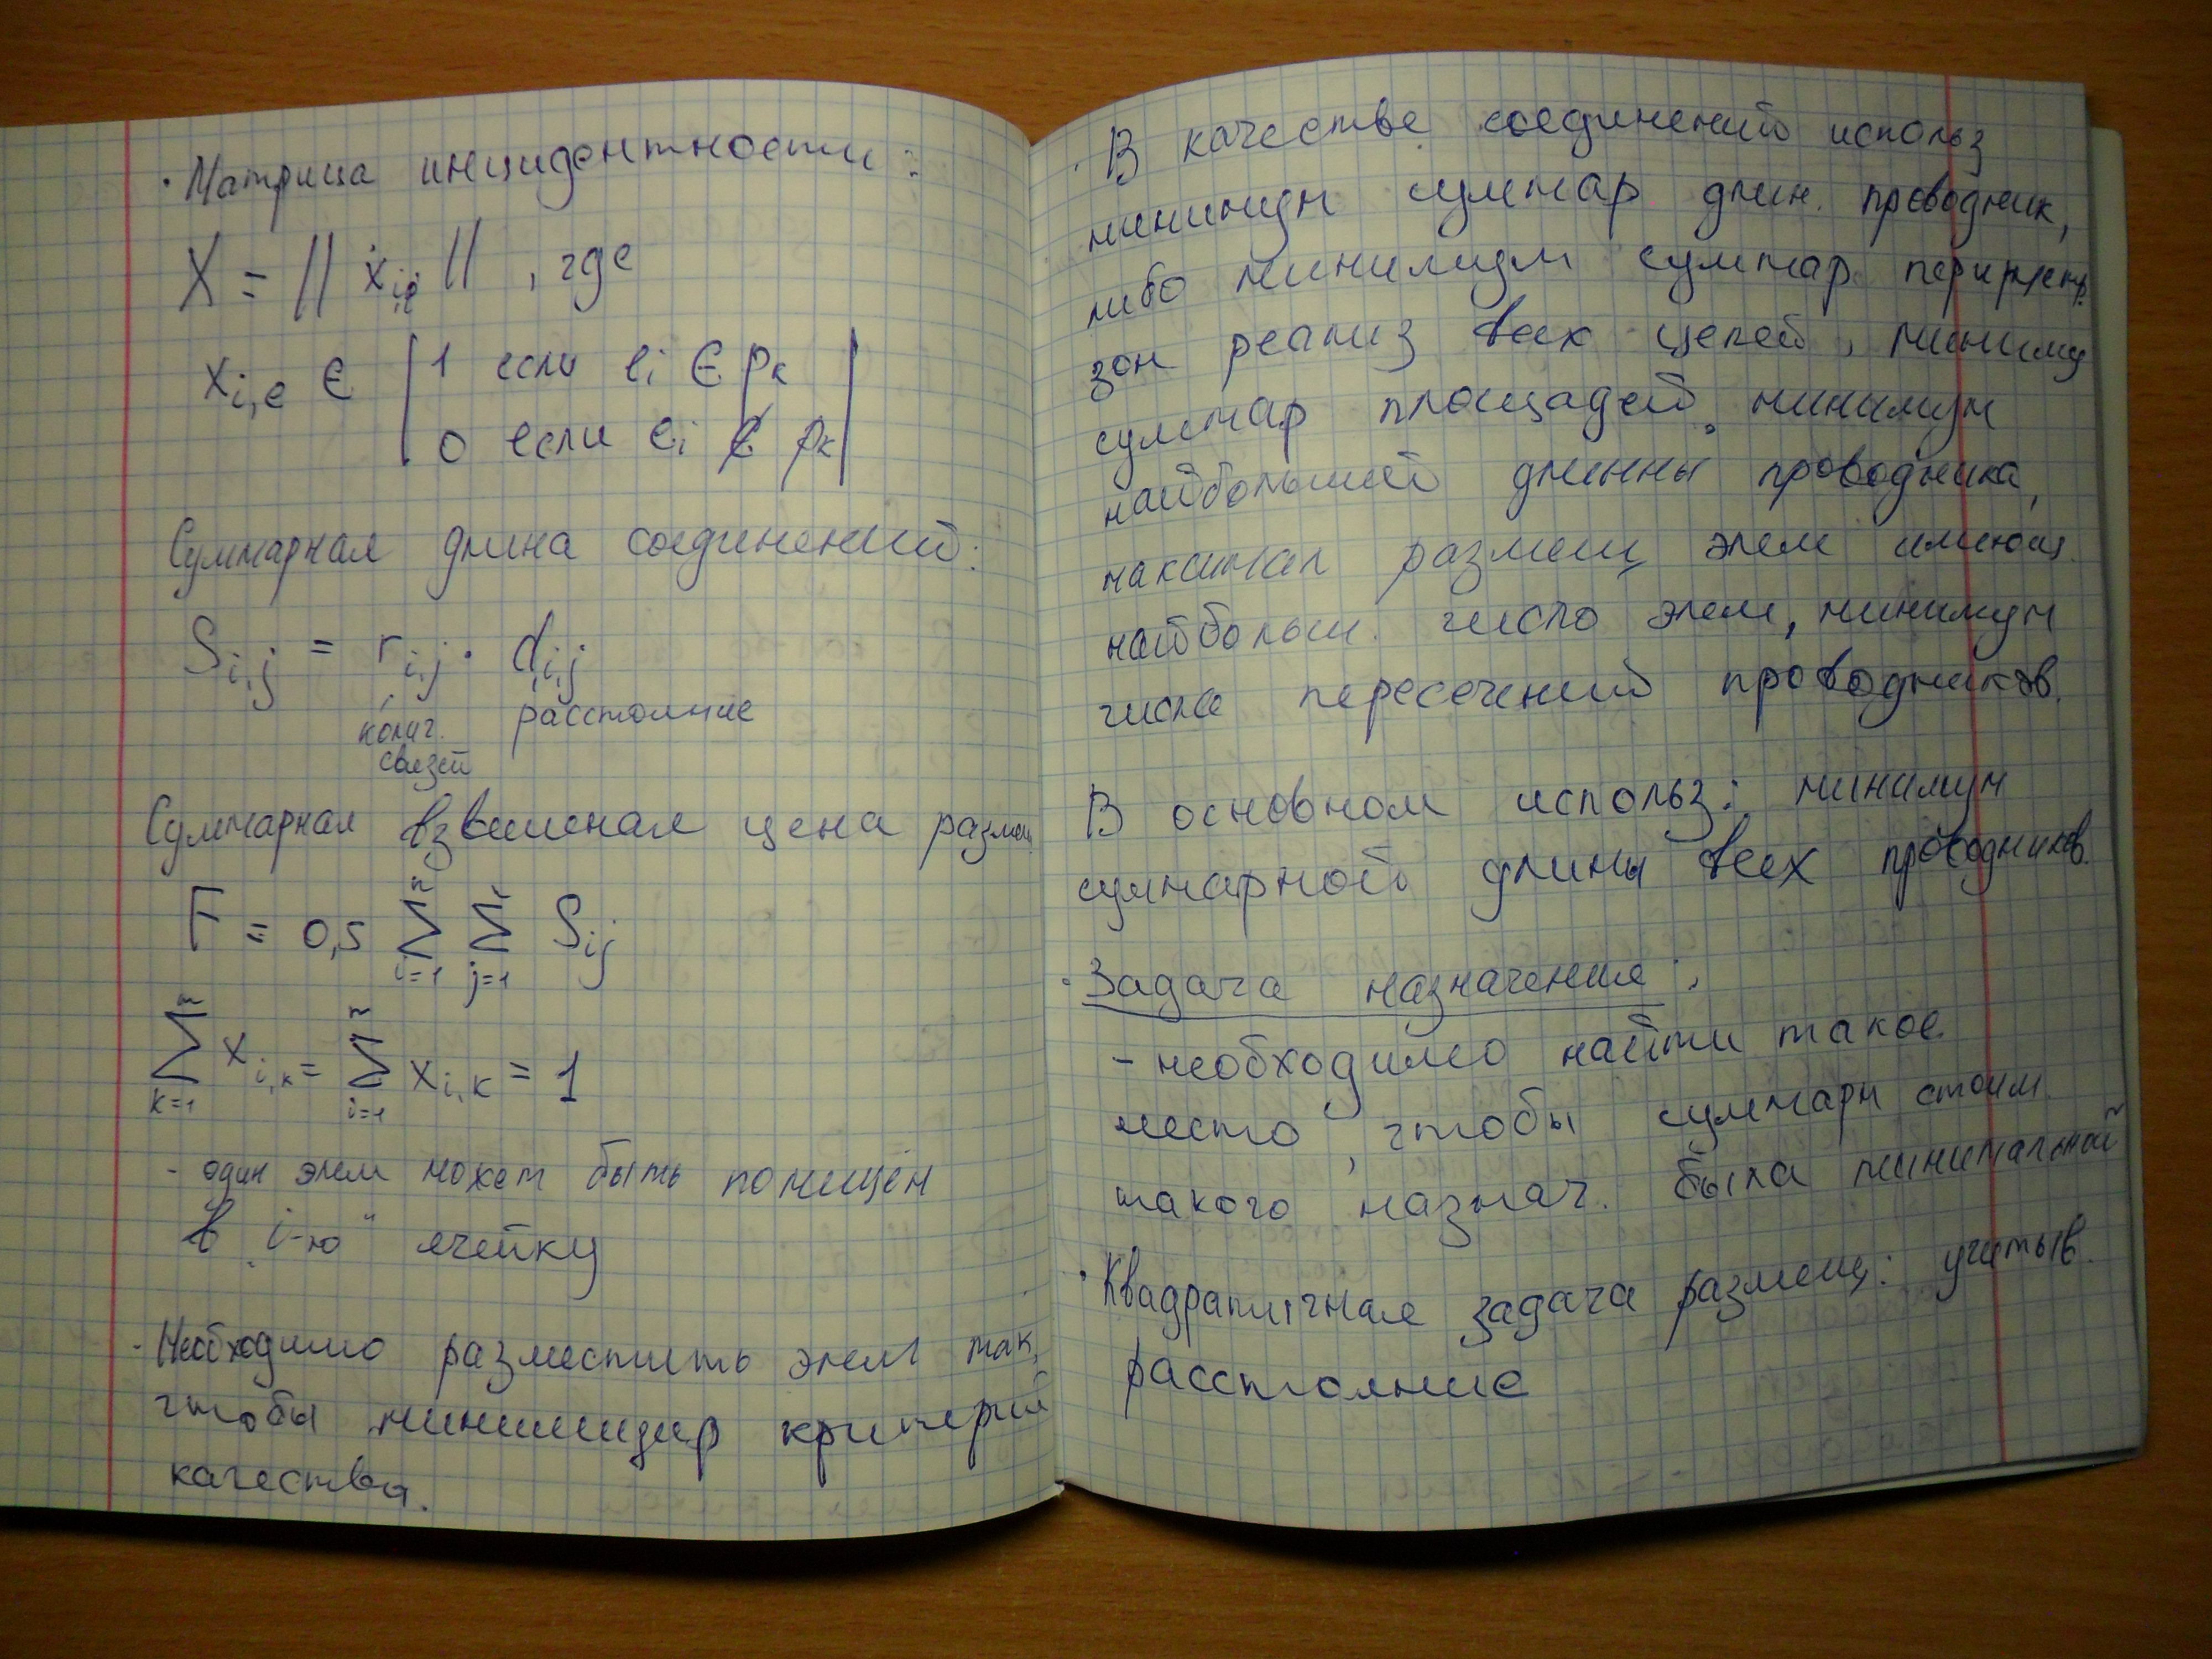 · Матрица инцидентности:
X = || x_{i,e} || , где
x_{i,e} ∈ | 1 если e_i ∈ p_k
0 если e_i ∉ p_k |
Суммарная длина соединений:
S_{i,j} = r_{i,j} · d_{i,j}
колич. расстояние
связей
Суммарная взвешеная цена размещ
F = 0,5 ∑_{i=1}^{n} ∑_{j=1}^{n} S_{ij}
∑_{k=1}^{m} x_{i,k} = ∑_{i=1}^{n} x_{i,k} = 1
- один элем может быть помещён
в „i-ю“ ячейку
· Необходимо разместить элем так,
чтобы минимизир критерий
качества.
· В качестве соединений использ
минимум суммар длин. проводник,
либо минимизм суммар. периметр.
зон реализ всех цепей, миниму
суммар площадей, минимум
наибольшей длинны проводника,
максимал размещ элем имеющ.
наибольш. число элем, минимум
числа пересечений проводников.
В основном использ: минимум
суммарной длины всех проводников.
· Задача назначения:
- необходимо найти такое
место, чтобы суммарн стоим.
такого назнач. была минимальной
· Квадратичная задача размещ: учитыв.
расстояние